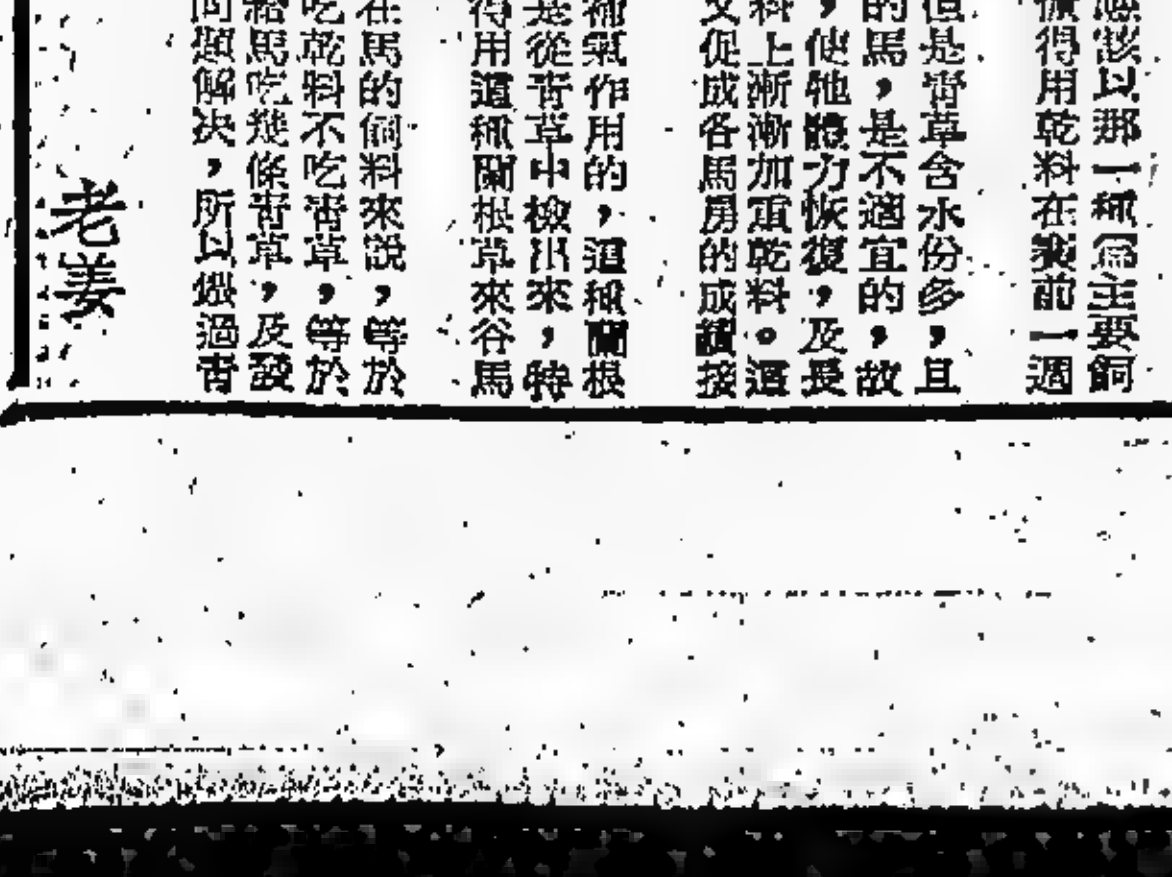 應該以那一種爲主要飼
慣得用乾料在賽前一週
但是靑草含水份多，且
的馬，是不適宜的，故
，使牠體力恢復，及長
料上漸漸加重乾料。這
又促成各馬房的成績接
補氣作用的，這種蘭根
是從靑草中檢出來，特
得用這種蘭根草來谷馬
在馬的飼料來說，等於
吃乾料不吃靑草，等於
給馬吃幾條靑草，及發
問題解决，所以僅過靑
老姜